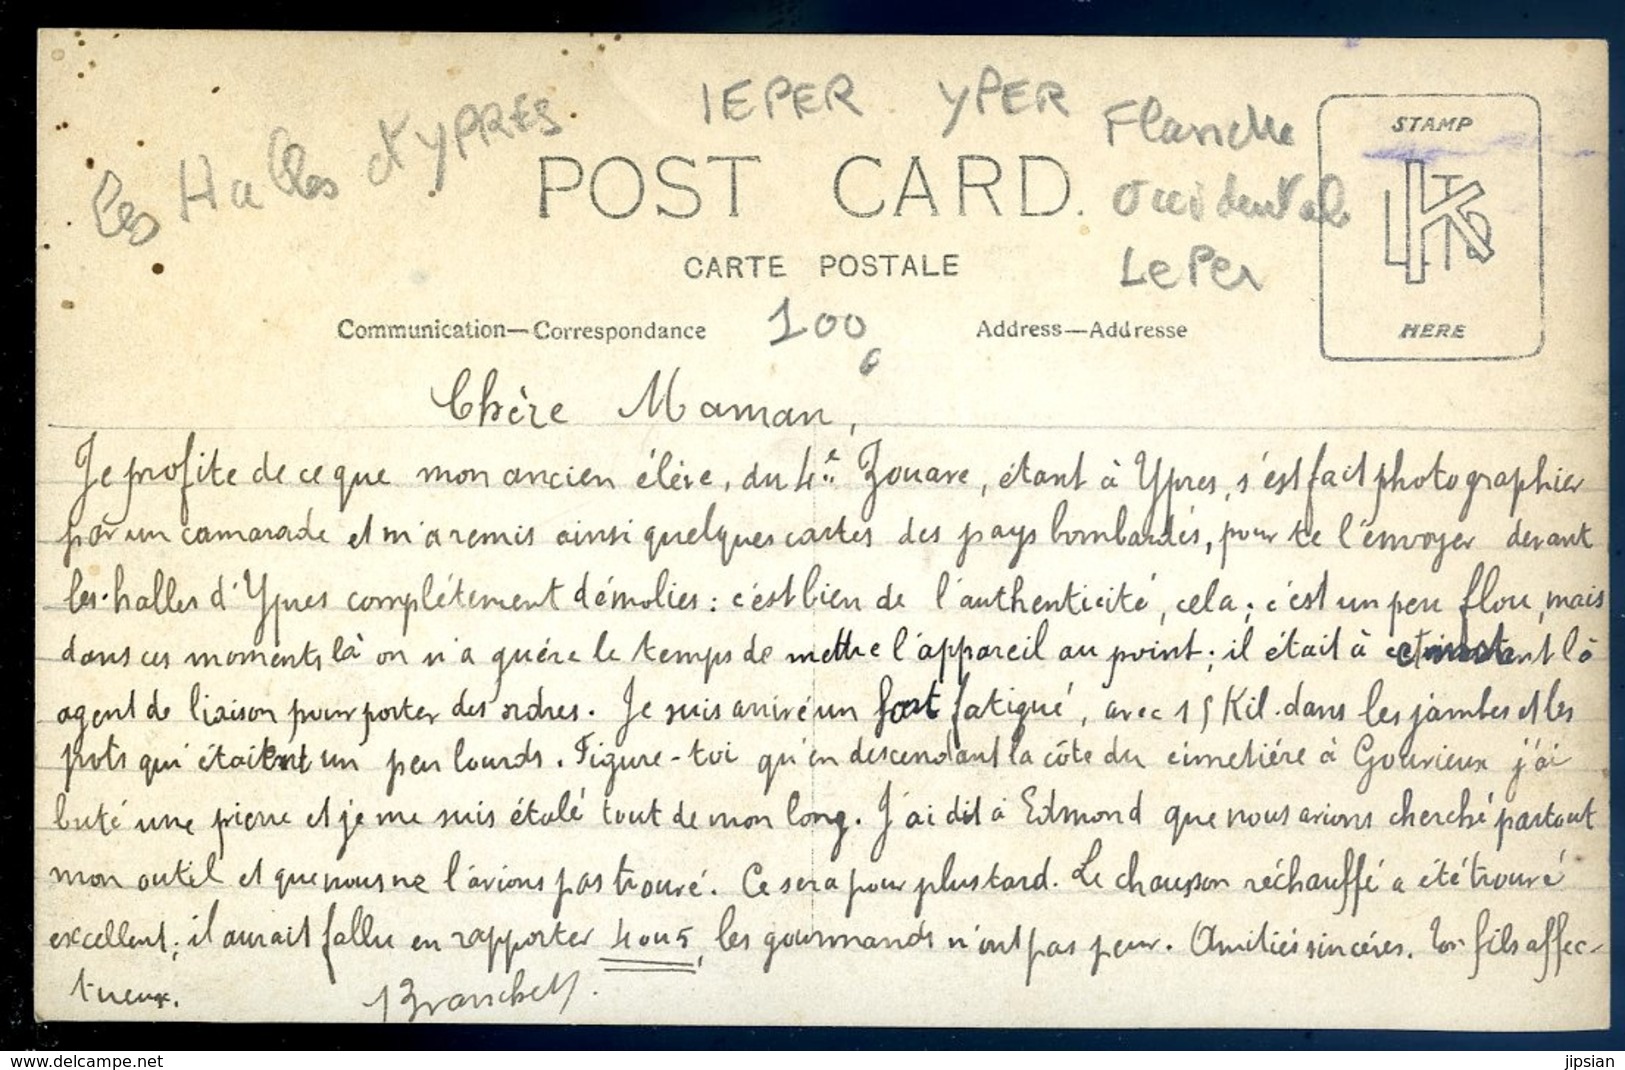 Les Halles d'YPRES
IEPER YPER
Flandre
Occidentale
IePer
POST CARD.
CARTE POSTALE
STAMP
HERE
Communication—Correspondance
100
Address—Addresse
Chère Maman,
Je profite de ce que mon ancien élève, du 4e Zouave, étant à Ypres, s'est fait photographier
par un camarade et m'a remis ainsi quelques cartes des pays bombardés, pour te l'envoyer devant
les halles d'Ypres complétement démolies : c'est bien de l'authenticité, cela ; c'est un peu flou, mais
dans ces moments là on n'a guère le temps de mettre l'appareil au point ; il était à cet instant là
agent de liaison pour porter des ordres. Je suis arrivé un fort fatigué, avec 15 Kil. dans les jambes et les
pots qui étaient un peu lourds. Figure-toi qu'en descendant la côte du cimetière à Gouvieux j'ai
buté une pierre et je me suis étalé tout de mon long. J'ai dit à Edmond que nous avions cherché partout
mon outil et que nous ne l'avions pas trouvé. Ce sera pour plus tard. Le chausson réchauffé a été trouvé
excellent ; il aurait fallu en rapporter 4 ou 5, les gourmands n'ont pas peur. Amitiés sincères. Ton fils affec-
tueux. Branchett.
www.delcampe.net
jipsian